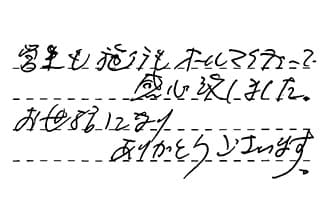 営業も施行もオールマイティーで
感心致しました。
お世話になり
ありがとうございます。